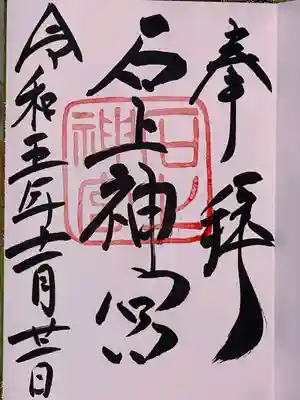 奉拝
石上神宮
石上神宮
令和五年十一月廿一日